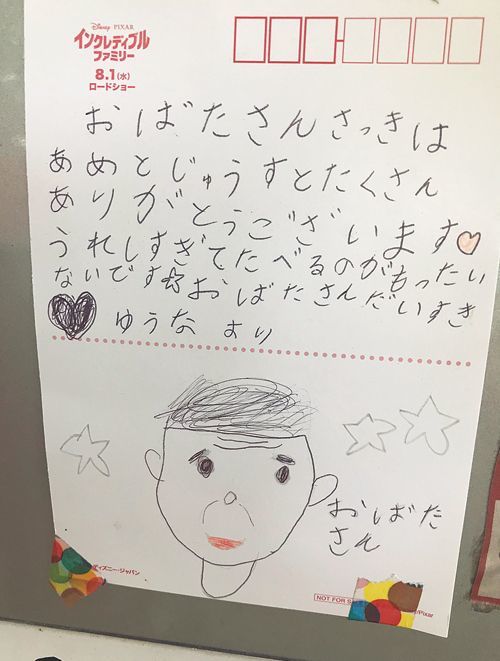 Disney PIXAR
インクレディブル
ファミリー
8.1(水)
ロードショー
おばたさんさっきは
あめとじゅうすとたくさん
ありがとうございます
うれしすぎてたべるのがもったい
ないです おばたさんだいすき
ゆうなより
おばた
さん
ディズニー・ジャパン
NOT FOR SA
/Pixar